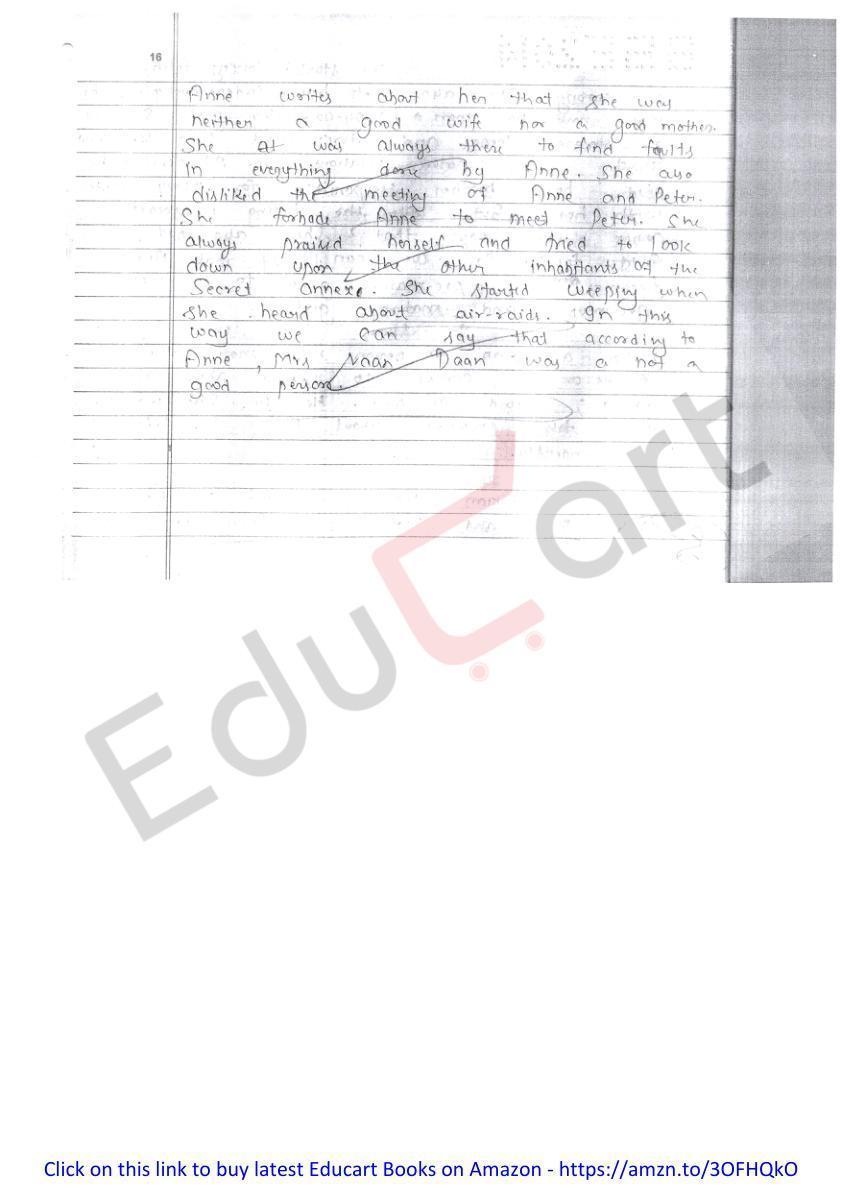 16
Anne writes about her that she way
neither a good wife nor a good mother.
She At was always there to find faults
In everything done by Anne. She also
disliked the meeting of Anne and Peter.
She forbade Anne to meet Peter. She
always praised herself and tried to look
down upon the other inhabitants of the
Secret annexe. She started weeping when
she heard about air-raids. In this
way we can say that according to
Anne, Mrs Naan Daan was a not a
good person.
EduCart
Click on this link to buy latest Educart Books on Amazon - https://amzn.to/3OFHQkO